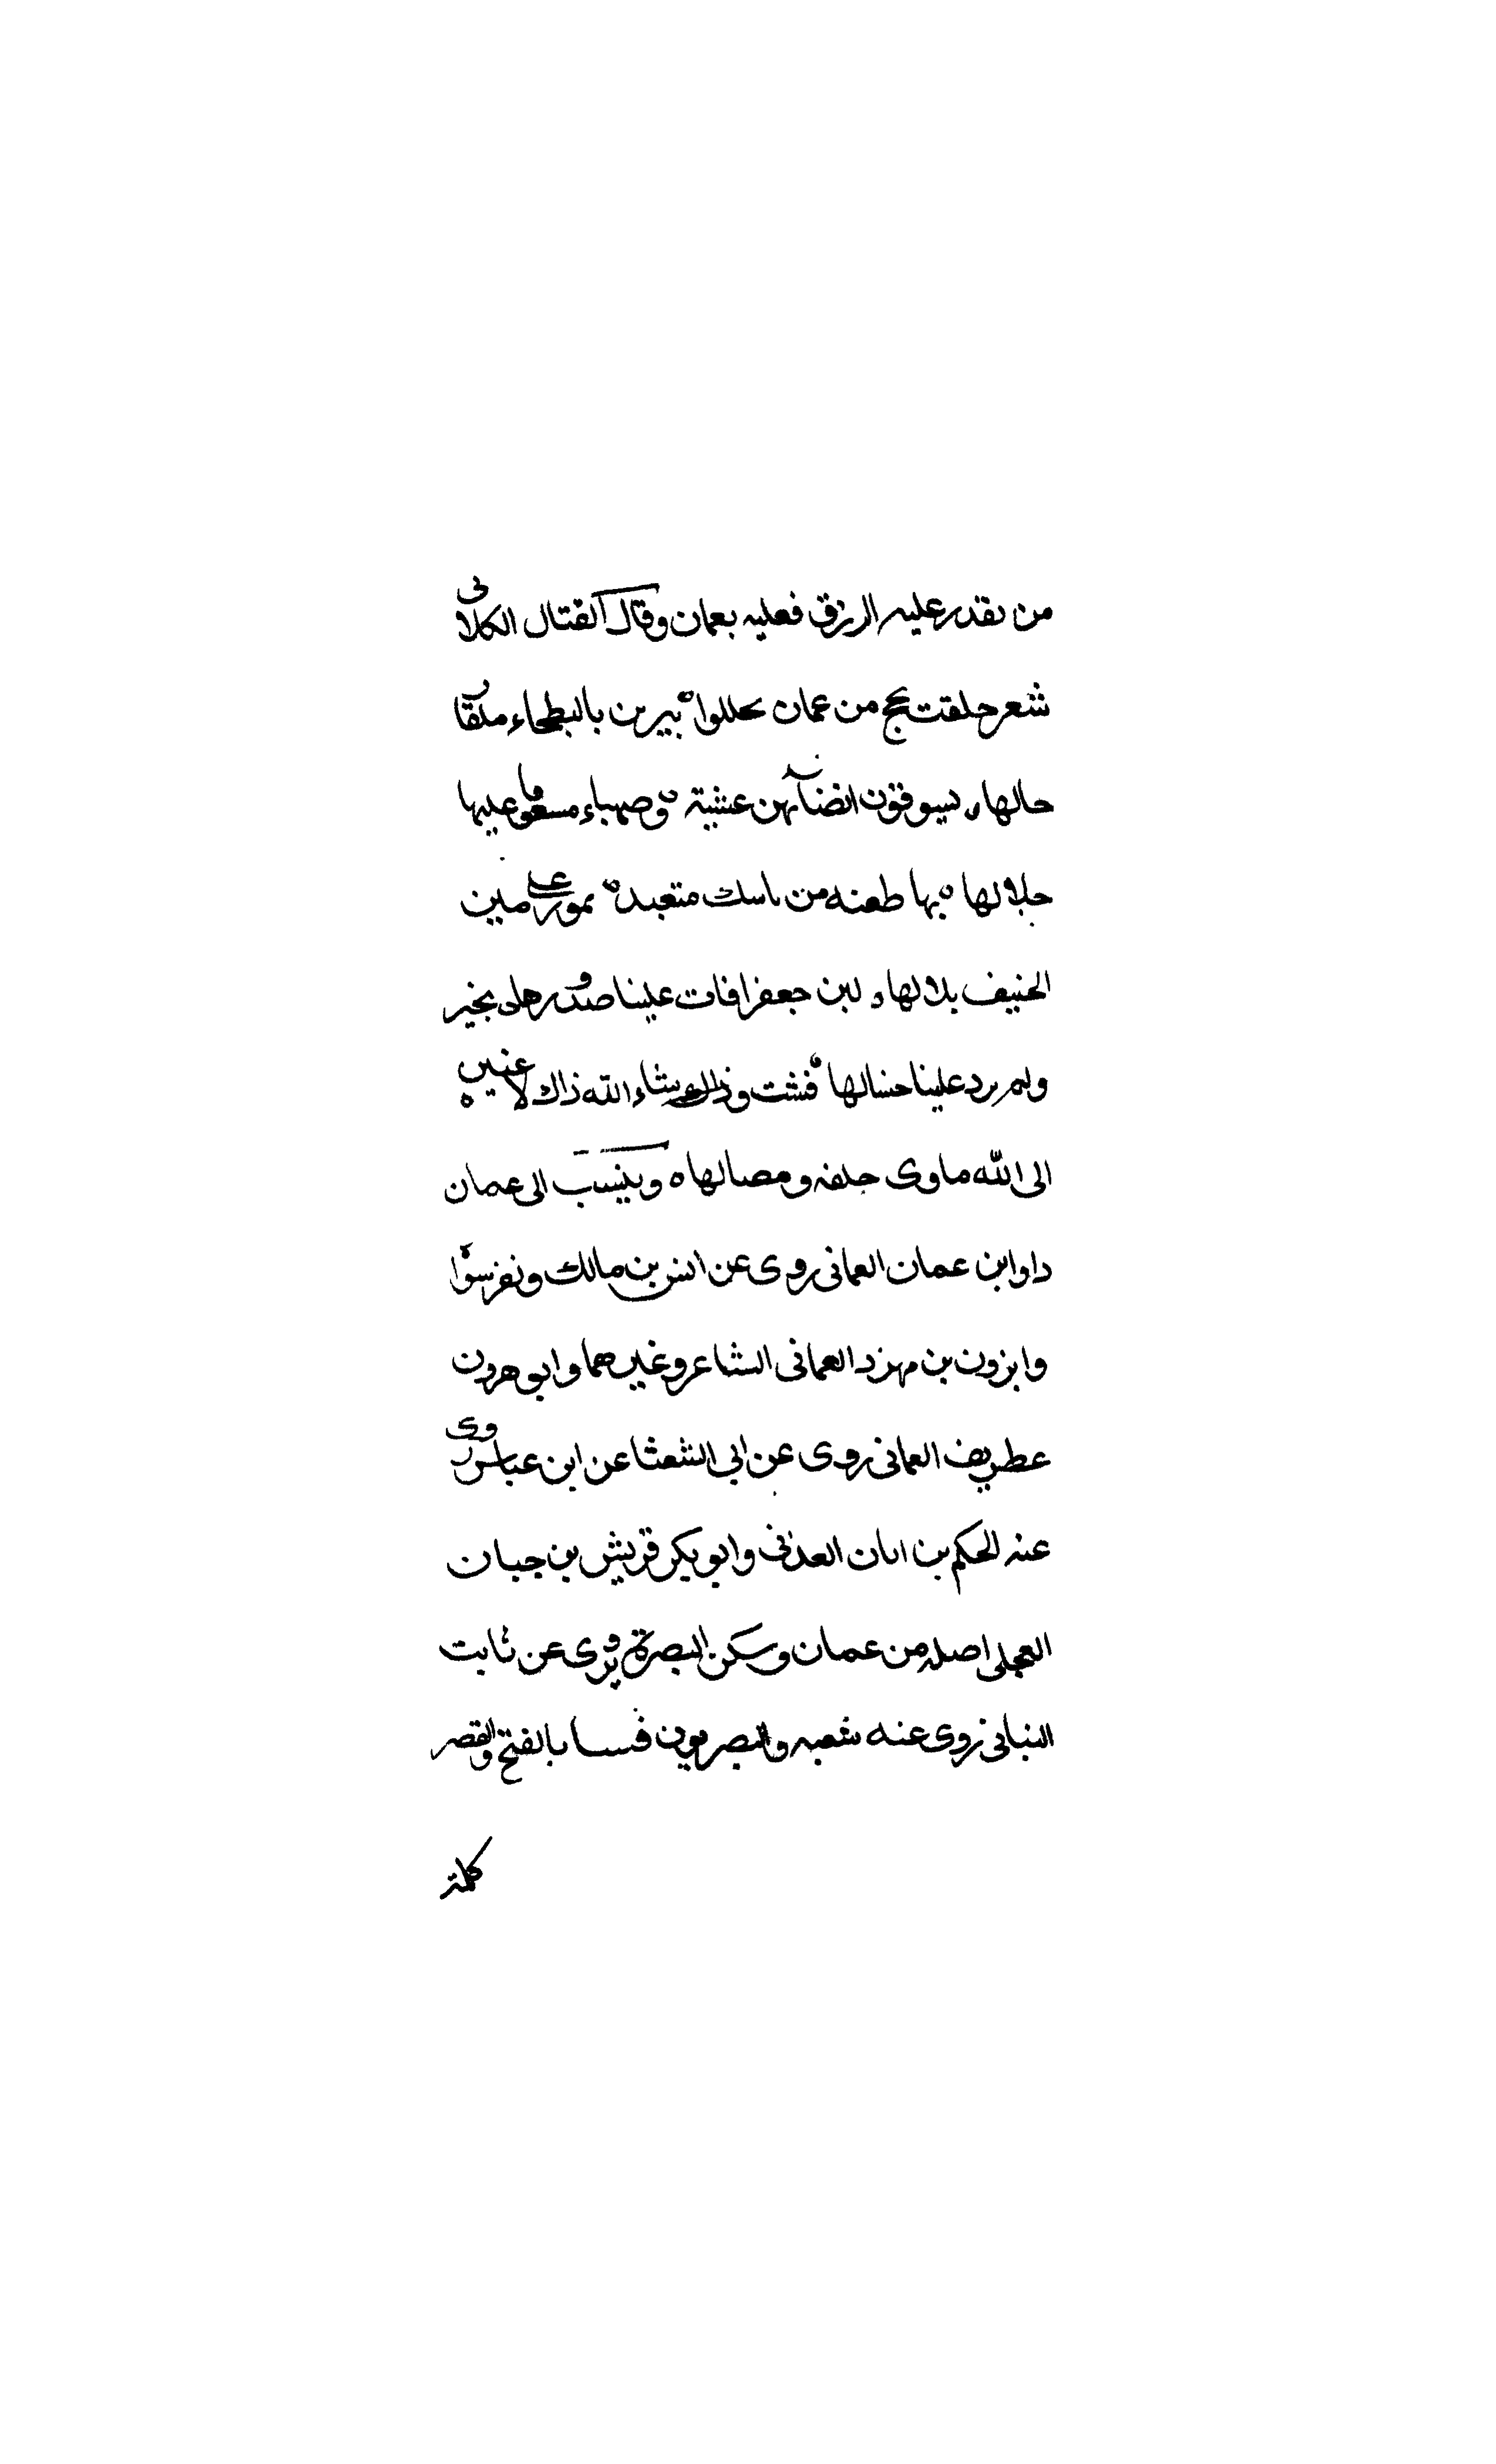 من يقدر عليه الرزق فعليه بعمان وقال القتال الكلابي
شعر حلقت بحج من عمان تحللوا ببيرين بالبطحاء ملقا
حالها يسوقون انضآ بهن عشية وصهباء مسقوما عليها
جلالها بها طعنه من ناسك متعبد بمور على مين
الحنيف بلالها لبن جعفر افات علينا صدور هلى بخير
ولم يرد علينا حسالها فشئت وذلك شاء الله ذاك لاعنين
الى الله ماوى جلفه ومصالها ه وينسب الى عمان
داوابن عمان العمانى روى عن انس بن مالك ونفر سوا
وابزون بن مهزد العمانى الشاعر وغيرهما وابو هرون
عطريف العمانى روى عن ابي الشعثا عن ابن عباس روى
عنه الحكم بن ابان العدنى وابو بكر قريش بن حبان
العجلى اصله من عمان وسكن البصرة يروى عن ثابت
البنانى روى عنه شعبه والبصريون فسا بالفتح والقصر
كلمة